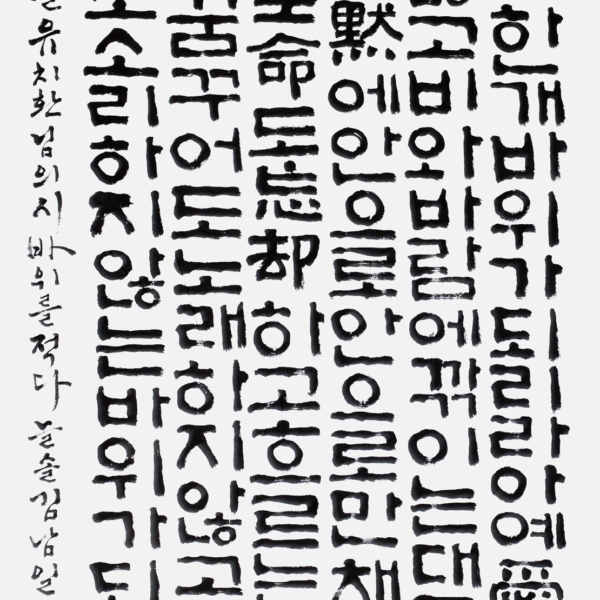 한개바위가되리라아예愛
고비와바람에깎이는대
默에안으로안으로만채
命도忘却하고흐르는
꿈꾸어도노래하지않고
소리하지않는바위가되
유치환님의시 바위를적다 늘솔김남일